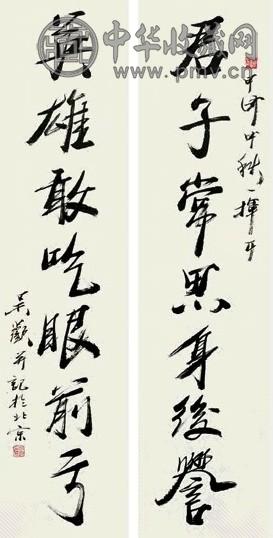 中华收藏网
君子常思身後譽
甲申中秋一揮耳
英雄敢吃眼前亏
吴歡并記於北京